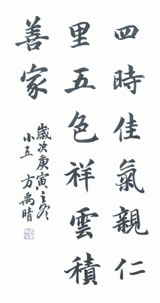 四時佳氣親仁
里五色祥雲積
善家
歲次庚寅之冬
小五 方禹晴